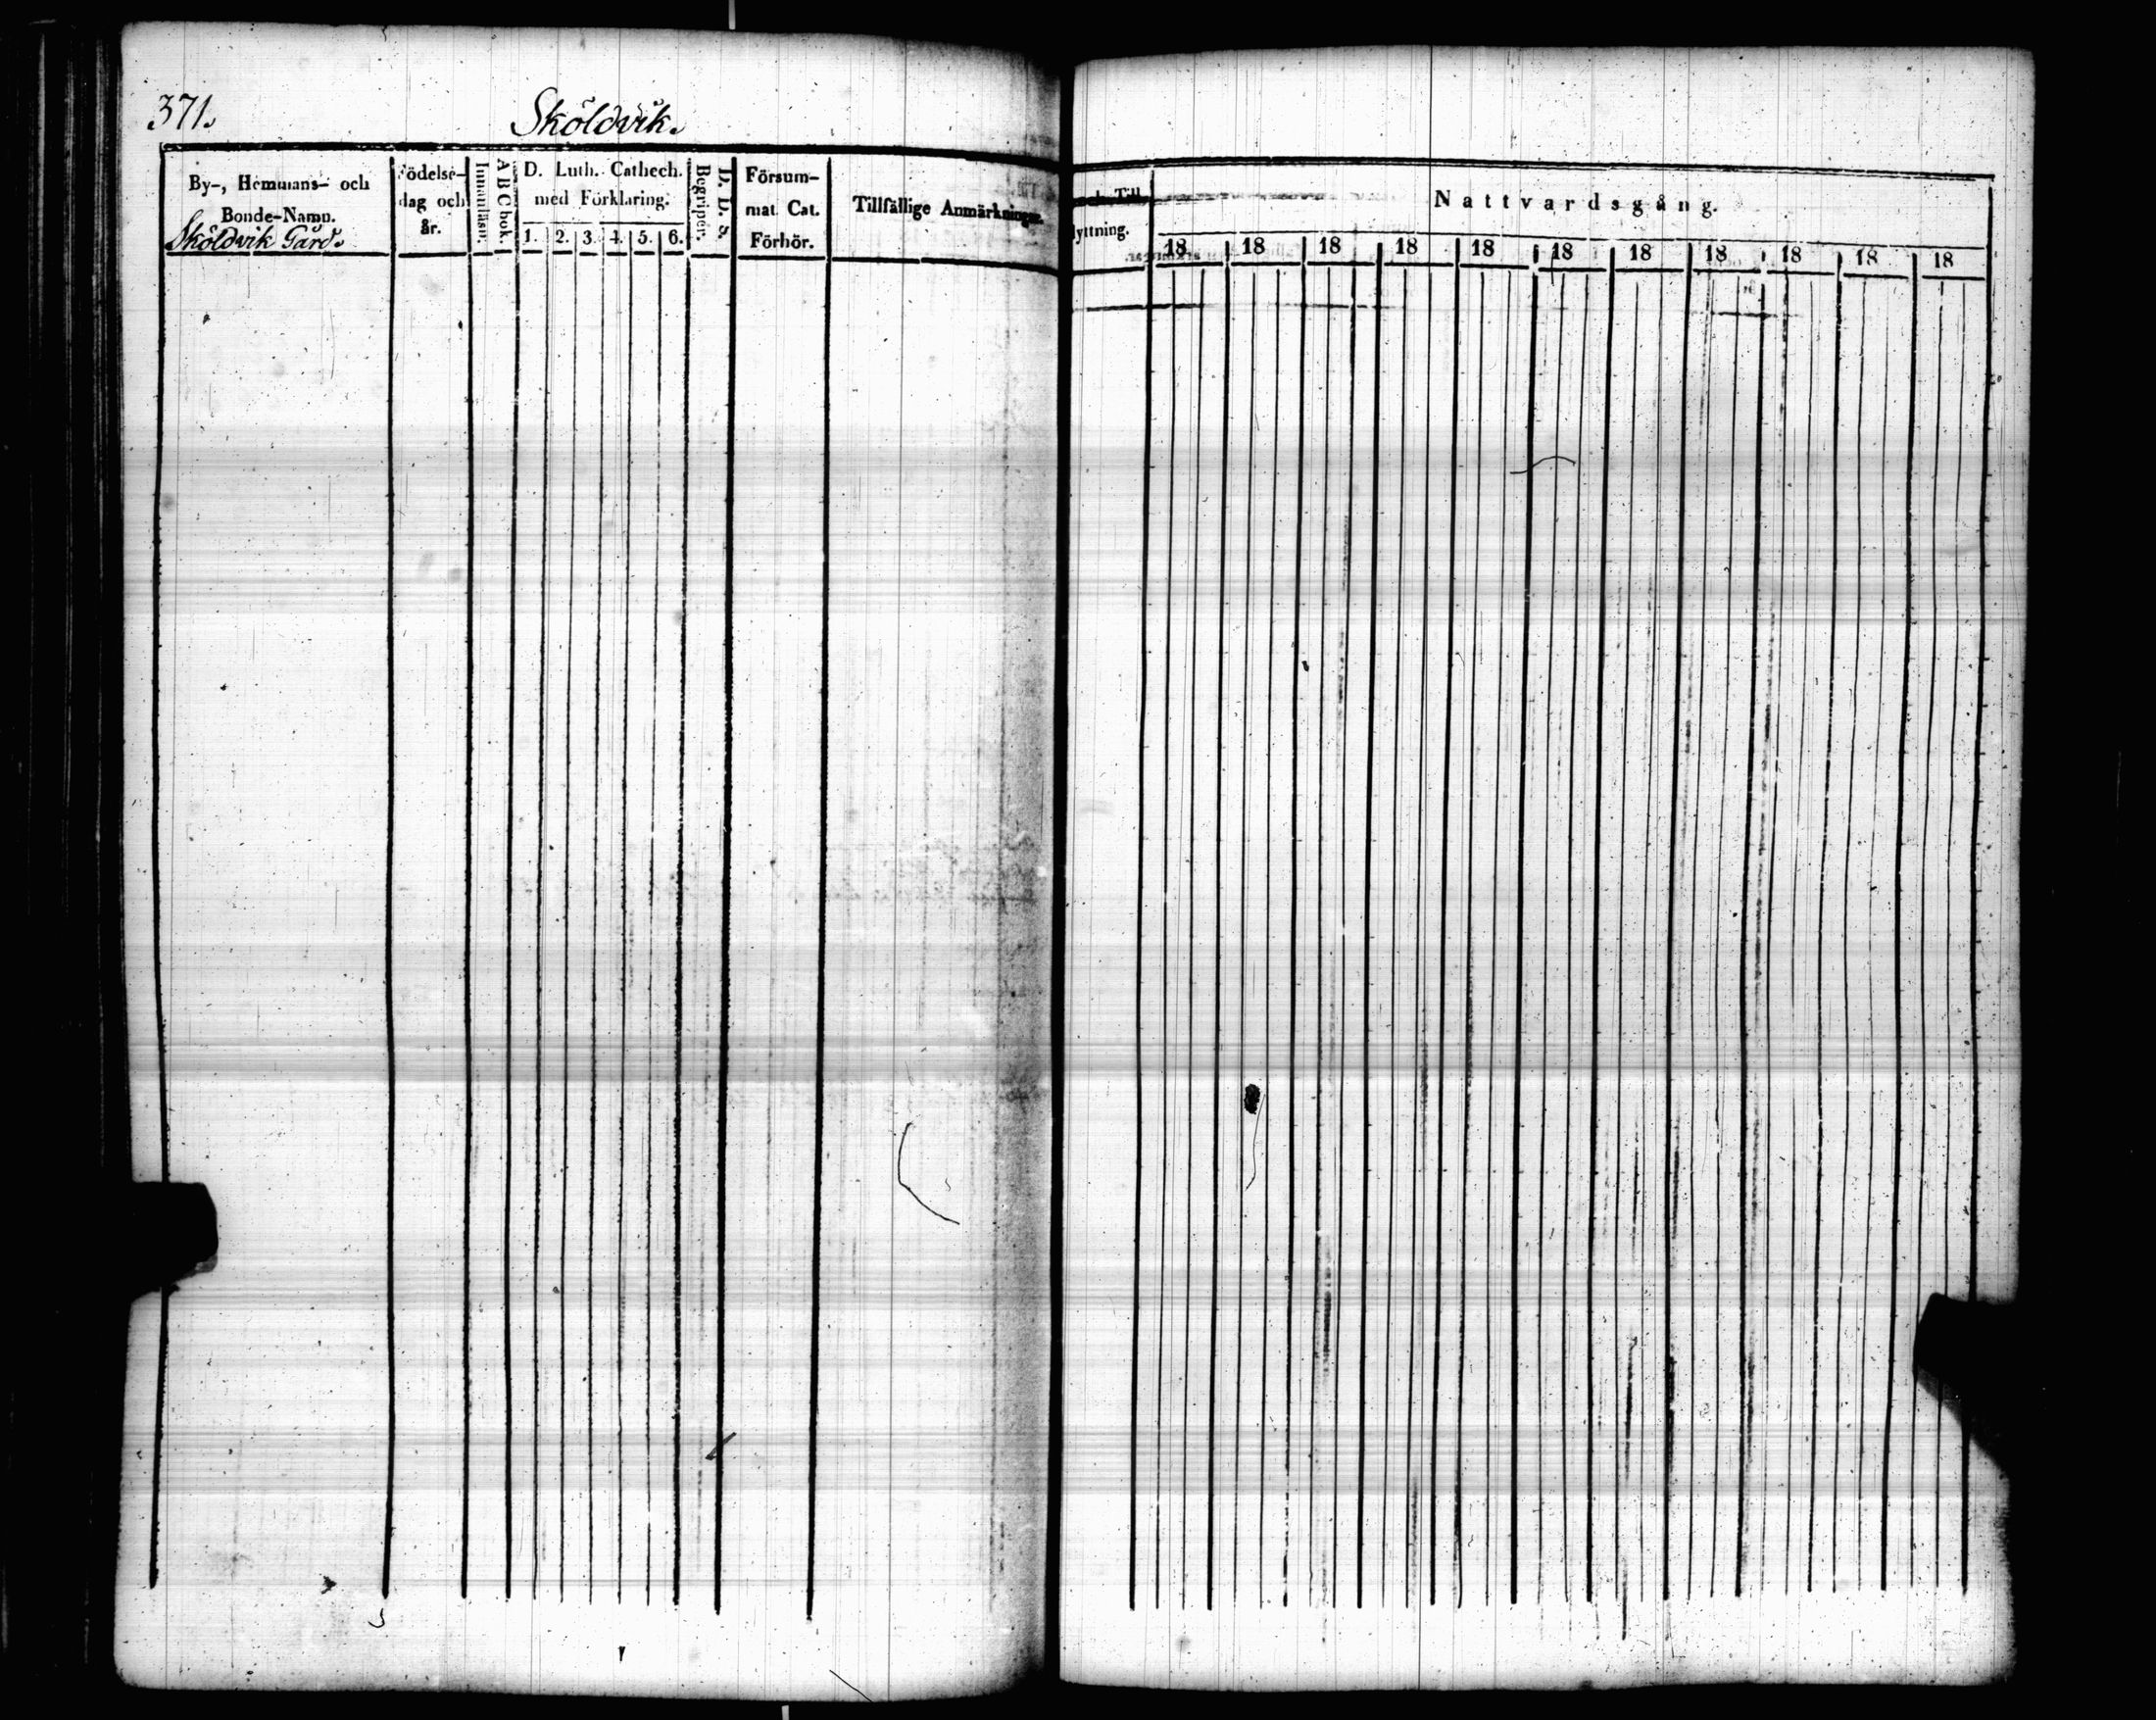 371.
Sköldvik.
By-, Hemmans- och
Bonde-Namn.
Sköldvik Gård.
födelse-
dag och
år.
Innanläsn.
A B C bok.
D. Luth. Cathech.
med Förklaring.
1. 2. 3. 4. 5. 6.
Begriper.
D. D. S.
Försum-
mat Cat.
Förhör.
Tillfällige Anmärkningar.
och Till
lyttning.
Nattvardsgång.
18 18 18 18 18 18 18 18 18 18 18